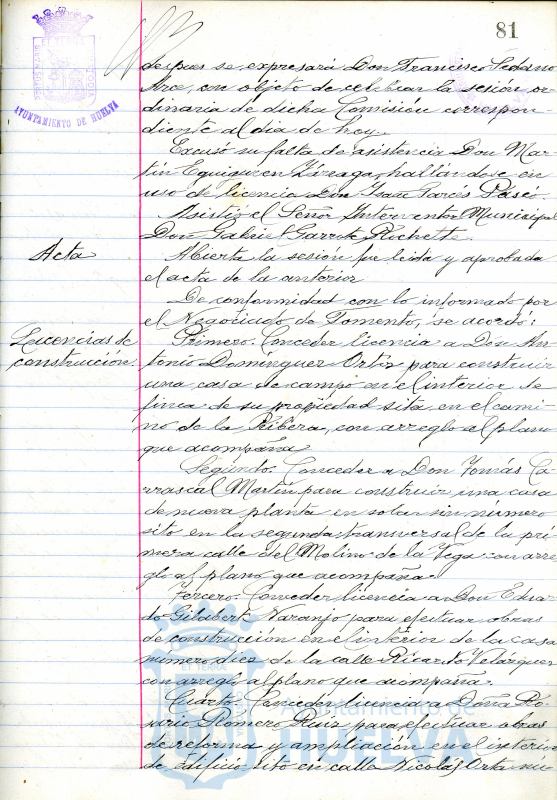 81
AYUNTAMIENTO DE HUELVA
despues se expresará Don Francisco Sedano
Arce, con objeto de celebrar la sesion or-
dinaria de dicha Comisión correspon-
diente al dia de hoy.
Excusó su falta de asistencia Don Mar-
tín Eguiguren Lizeaga, hallandose en
uso de licencia Don Isaac Garcés Pascó.
Asistió el Señor Interventor Municipal
Don Gabriel Garrote Rochette.
Acta
Abierta la sesión fue leida y aprobada
el acta de la anterior.
De conformidad con lo informado por
el Negociado de Fomento, se acordó:
Licencias de
construcción.
Primero. Conceder licencia a Don An-
tonio Domínguez Ortiz para construir
una casa de campo en el interior de
finca de su propiedad sita en el cami-
no de la Ribera, con arreglo al plano
que acompaña.
Segundo. Conceder a Don Tomás Ca-
rrascal Martín para construir una casa
de nueva planta en solar sin número
sito en la segunda transversal de la pri-
mera calle del Molino de la Vega con arre-
glo al plano que acompaña.
Tercero. Conceder licencia a Don Eduar-
do Gilabert Naranjo para efectuar obras
de construcción en el interior de la casa
número diez de la calle Ricardo Velázquez
con arreglo al plano que acompaña.
Cuarto. Conceder licencia a Doña Ro-
sario Romero Ruiz para efectuar obras
de reforma y ampliación en el interior
de edificio sito en calle Nicolás Orta nú-
Ayuntamiento de
HUELVA